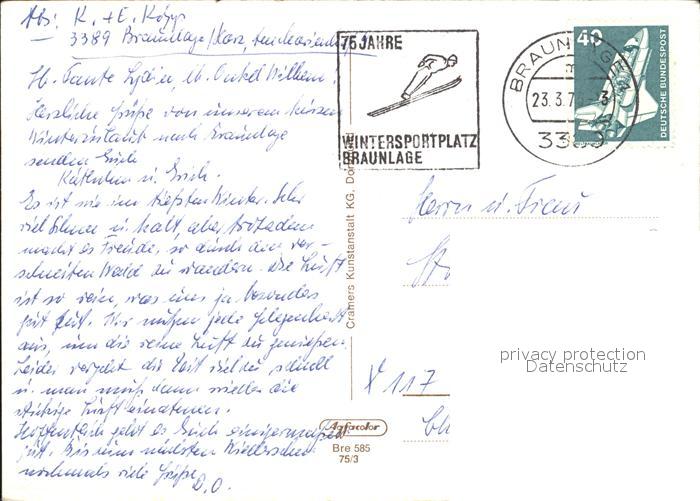 Abs: K. + E. Kopp
3389 Braunlage/Harz,
Lb. Tante Lydia, lb. Onkel Wilhelm!
Herzliche Grüße von unserem kurzen
Winterurlaub nach Braunlage
senden Euch
Käthchen u. Erich.
Es ist wie im tiefsten Winter. Sehr
viel Schnee u. kalt, aber trotzdem
macht es Freude, so durch den ver-
schneiten Wald zu wandern. Die Luft
ist so rein, was uns ja besonders
gut tut. Wir nutzen jede Gelegenheit
aus, um die reine Luft zu genießen.
Leider vergeht die Zeit viel zu schnell
u. man muß dann wieder die
Luft einatmen.
Hoffentlich geht es Euch einigermaßen
gut. Bis zum nächsten Wiedersehen
nochmals viele Grüße
D. O.
75 JAHRE
WINTERSPORTPLATZ
BRAUNLAGE
BRAUNLAGE
23.3.7
3389
40
DEUTSCHE BUNDESPOST
Cramers Kunstanstalt KG, Dor
Herrn u. Frau
117
Agfacolor
Bre 585
75/3
privacy protection
Datenschutz